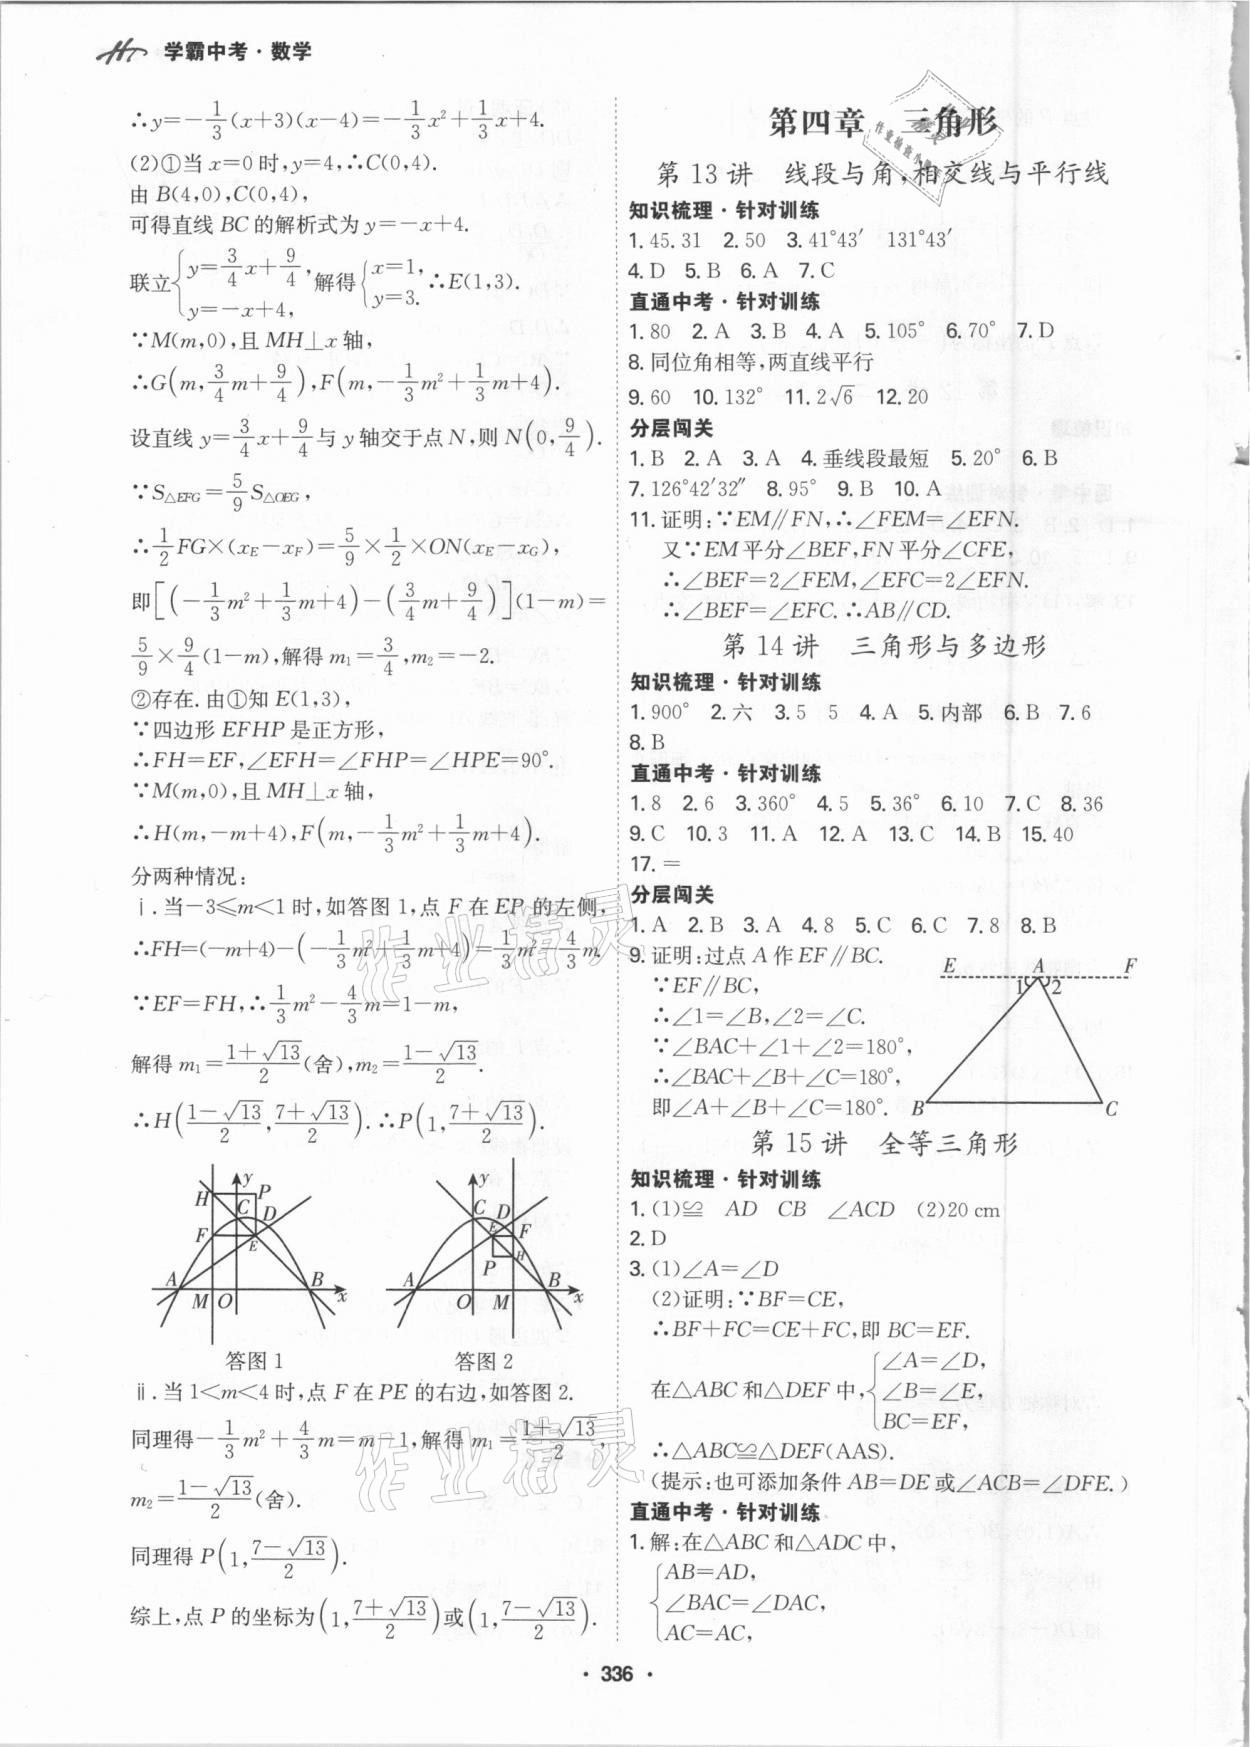 学霸中考·数学
∴y=-1/3(x+3)(x-4)=-1/3x²+1/3x+4.
(2)①当x=0时,y=4,∴C(0,4).
由B(4,0),C(0,4),
可得直线BC的解析式为y=-x+4.
联立{y=3/4x+9/4, y=-x+4, 解得{x=1, y=3. ∴E(1,3).
∵M(m,0),且MH⊥x轴,
∴G(m,3/4m+9/4),F(m,-1/3m²+1/3m+4).
设直线y=3/4x+9/4与y轴交于点N,则N(0,9/4).
∵S△EFG=5/9S△OEG,
∴1/2FG×(xE-xF)=5/9×1/2×ON(xE-xG),
即[(-1/3m²+1/3m+4)-(3/4m+9/4)](1-m)=
5/9×9/4(1-m),解得m₁=3/4,m₂=-2.
②存在.由①知E(1,3),
∵四边形EFHP是正方形,
∴FH=EF,∠EFH=∠FHP=∠HPE=90°.
∵M(m,0),且MH⊥x轴,
∴H(m,-m+4),F(m,-1/3m²+1/3m+4).
分两种情况:
ⅰ.当-3≤m<1时,如答图1,点F在EP的左侧,
∴FH=(-m+4)-(-1/3m²+1/3m+4)=1/3m²-4/3m.
∵EF=FH,∴1/3m²-4/3m=1-m,
解得m₁=(1+√13)/2(舍),m₂=(1-√13)/2.
∴H((1-√13)/2,(7+√13)/2).∴P(1,(7+√13)/2).
H y P C D F E A B M O x
y C D E F H P A B O M x
答图1 答图2
ⅱ.当1<m<4时,点F在PE的右边,如答图2.
同理得-1/3m²+4/3m=m-1,解得m₁=(1+√13)/2,
m₂=(1-√13)/2(舍).
同理得P(1,(7-√13)/2).
综上,点P的坐标为(1,(7+√13)/2)或(1,(7-√13)/2).
第四章 三角形
第13讲 线段与角,相交线与平行线
知识梳理·针对训练
1.45.31 2.50 3.41°43′ 131°43′
4.D 5.B 6.A 7.C
直通中考·针对训练
1.80 2.A 3.B 4.A 5.105° 6.70° 7.D
8.同位角相等,两直线平行
9.60 10.132° 11.2√6 12.20
分层闯关
1.B 2.A 3.A 4.垂线段最短 5.20° 6.B
7.126°42′32″ 8.95° 9.B 10.A
11.证明:∵EM∥FN,∴∠FEM=∠EFN.
又∵EM平分∠BEF,FN平分∠CFE,
∴∠BEF=2∠FEM,∠EFC=2∠EFN.
∴∠BEF=∠EFC.∴AB∥CD.
第14讲 三角形与多边形
知识梳理·针对训练
1.900° 2.六 3.5 5 4.A 5.内部 6.B 7.6
8.B
直通中考·针对训练
1.8 2.6 3.360° 4.5 5.36° 6.10 7.C 8.36
9.C 10.3 11.A 12.A 13.C 14.B 15.40
17.=
分层闯关
1.A 2.B 3.A 4.8 5.C 6.C 7.8 8.B
9.证明:过点A作EF∥BC.
∵EF∥BC,
∴∠1=∠B,∠2=∠C.
∵∠BAC+∠1+∠2=180°,
∴∠BAC+∠B+∠C=180°,
即∠A+∠B+∠C=180°.
E A F
1 2
B C
第15讲 全等三角形
知识梳理·针对训练
1.(1)≌ AD CB ∠ACD (2)20 cm
2.D
3.(1)∠A=∠D
(2)证明:∵BF=CE,
∴BF+FC=CE+FC,即BC=EF.
在△ABC和△DEF中,{∠A=∠D, ∠B=∠E, BC=EF,
∴△ABC≌△DEF(AAS).
(提示:也可添加条件AB=DE或∠ACB=∠DFE.)
直通中考·针对训练
1.解:在△ABC和△ADC中,
{AB=AD,
∠BAC=∠DAC,
AC=AC,
·336·
作业精灵
作业精灵